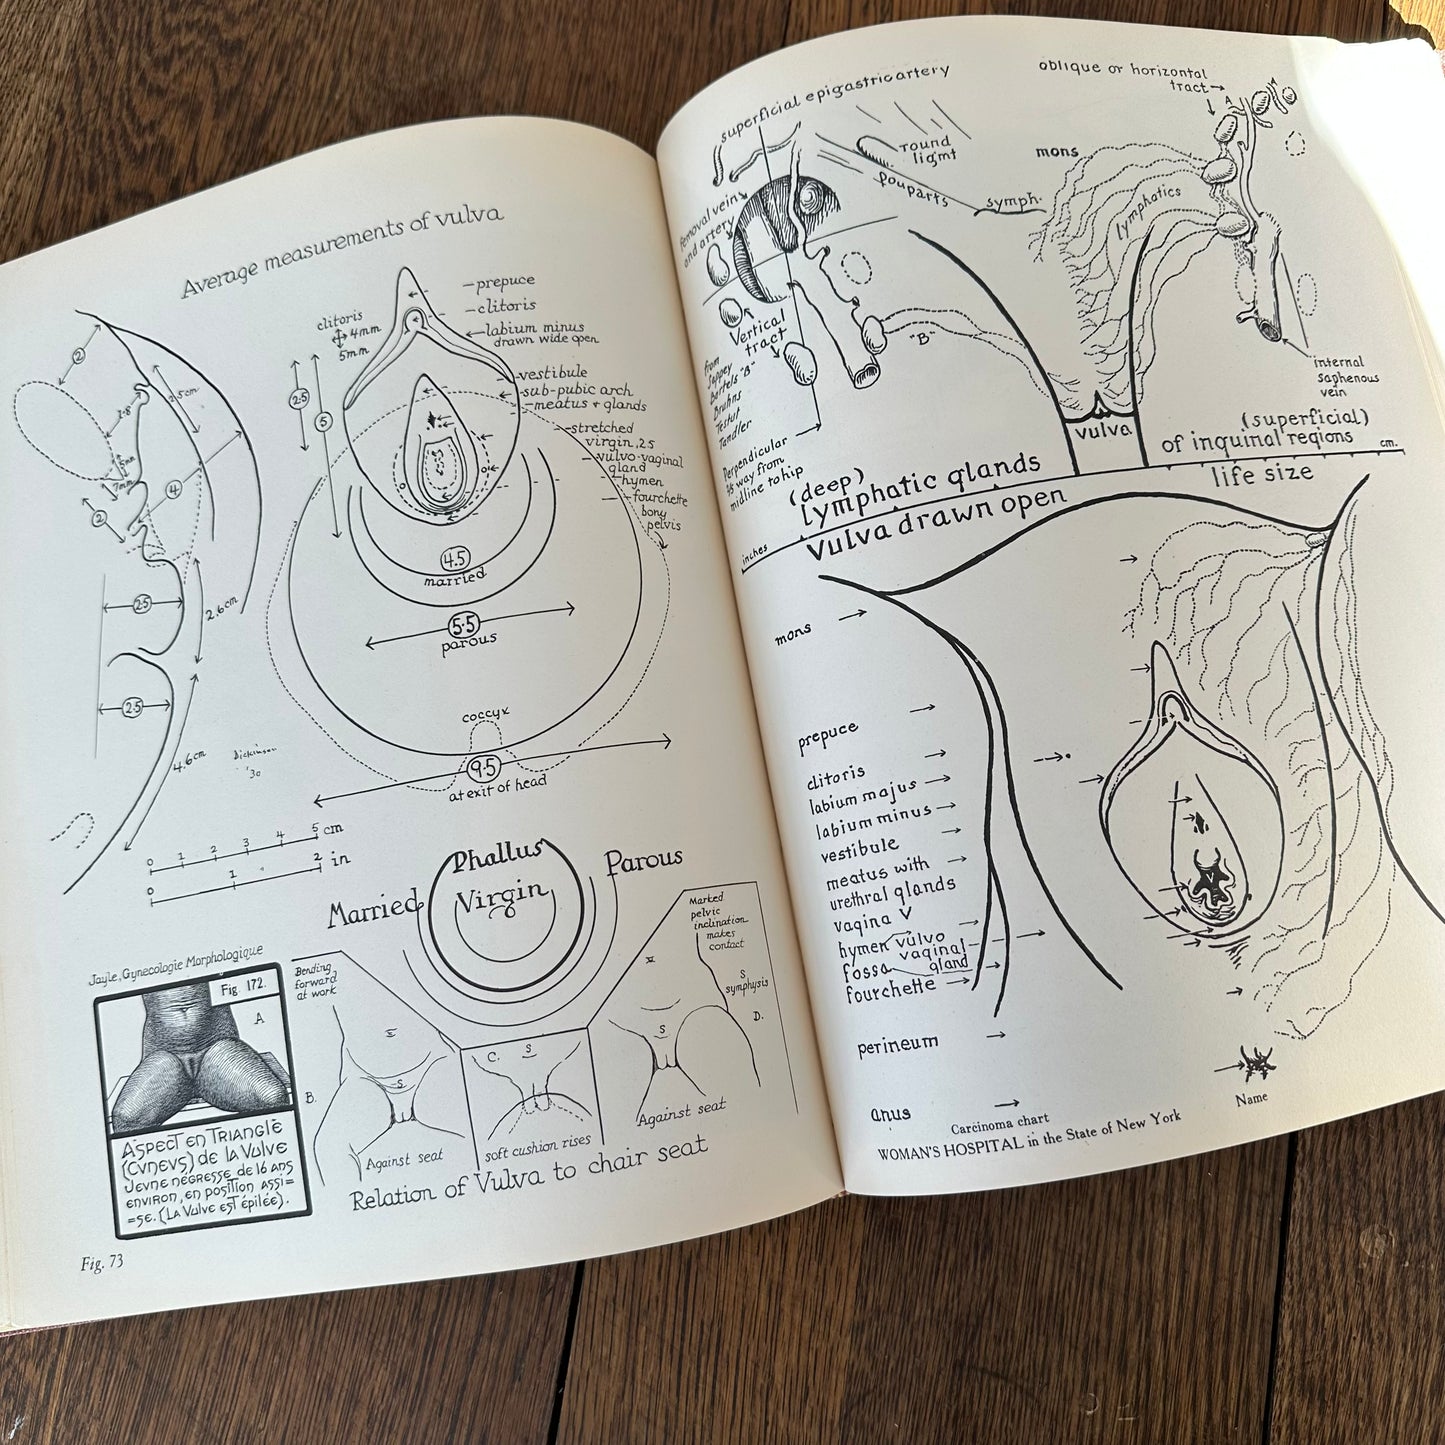 Average measurements of vulva
prepuce
clitoris
labium minus
drawn wide open
vestibule
sub-pubic arch
meatus + glands
stretched
virgin, 2.5
vulvo-vaginal
gland
hymen
fourchette
bony
pelvis
clitoris
4mm
5mm
2.5
5
2
2.5cm
1.8
5mm
7mm
4
2
2.5
2.6cm
2.5
4.6cm
Dickinson
'30
4.5
married
5.5
parous
coccyx
9.5
at exit of head
0 1 2 3 4 5 cm
0 1 2 in
Phallus
Married
Virgin
Parous
Jayle, Gynecologie Morphologique
Fig. 172.
A
ASPECT EN TRIANGLE
(CVNEVS) de LA VULVE
JEVNE NÉGRESSE de 16 ANS
ENVIRON, EN POSITION ASSI=
=SE. (LA VULVE EST ÉPILÉE).
Bending
forward
at work
B.
S
Against seat
C.
S
soft cushion rises
Marked
pelvic
inclination
makes
contact
S
symphysis
D.
S
Against seat
Relation of Vulva to chair seat
Fig. 73
superficial epigastric artery
round
ligmt
Pouparts
symph.
femoral vein
and artery
Vertical
tract
from
Sappey
Bartels "B"
Bruhns
Testut
Tandler
"B"
Perpendicular
way from
midline to hip
oblique or horizontal
tract
A
mons
lymphatics
internal
saphenous
vein
vulva
(deep)
lymphatic glands
(superficial)
of inguinal regions
cm.
inches
life size
vulva drawn open
mons
prepuce
clitoris
labium majus
labium minus
vestibule
meatus with
urethral glands
vagina V
hymen vulvo
vaginal
fossa gland
fourchette
perineum
anus
Carcinoma chart
Name
WOMAN'S HOSPITAL in the State of New York